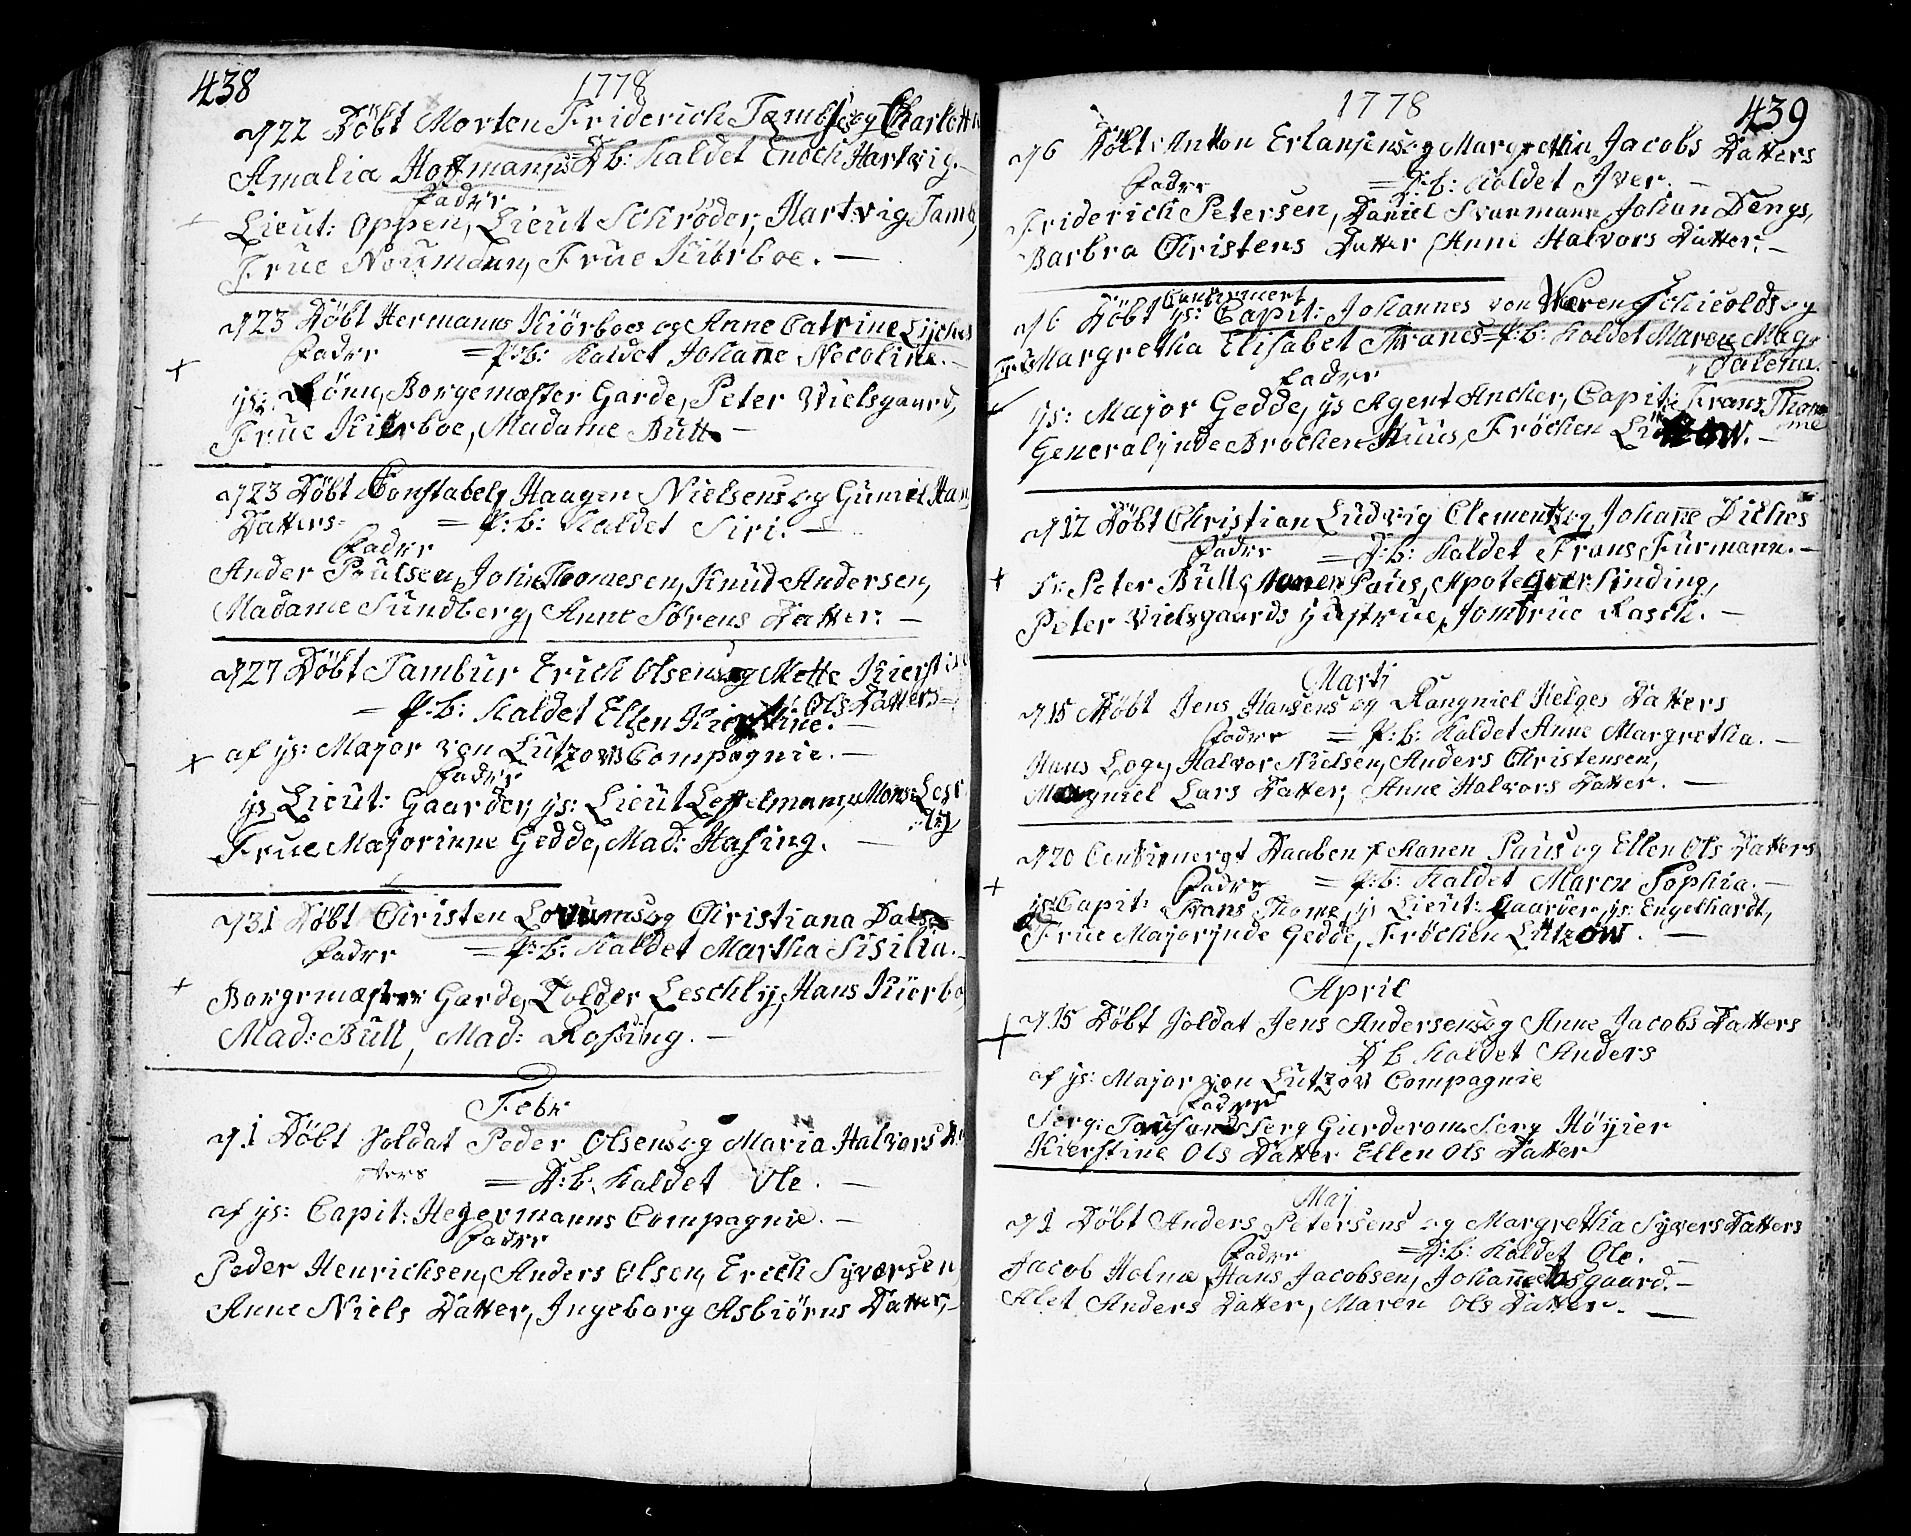 438
1778
d 22 Døbt Morten Friderich Tambs og Charlotta
Amalia Hoffmanns D: b: Kaldet Enoch Hartvig. —
Fadre
Lieut: Oppen, Lieut Schrøder, Hartvig Tamb,
Frue Noumann, Frue Kiørboe. —
d 23 Døbt Hermanns Kiørboes og Anne Catrine
Fadre = P: b: Kaldet Johanne Necoline. —
Borgemester Garde, Peter Vielsgaard,
Frue Kiørboe, Madame Bull —
d 23 Døbt Constabel Haagen Nielsens og
Datters = P: b: Kaldet Siri. —
Fadre
Ander Poulsen, John Thomesen, Knud Andersen,
Madame Sundberg, Anne Sørens Datter. —
d 27 Døbt Tambur Erich Olsens og Mette Kierstine
Ols Datters =
— P: b: Kaldet Ellen Kierstine. —
af Hr: Major von Lutzows Compagnie. —
Fadre
Hr Lieut: Gaarder, Hr: Lieut Leffelmann, Mons:
Frue Majorinne Gedde, Mad: Hasing. —
d 31 Døbt Christen og Christiana Dals
Fadre = P: b: Kaldet Martha Sisilia. —
Borgemester Garde, Tolder Leschly, Hans Kiørbo
Mad: Bull, Mad: Rossing. —
Febr
d 1 Døbt Soldat Peder Olsens og Maria Halvors
= D: b: Kaldet Ole. —
af Hr: Capit: Hegermanns Compagnie. —
Fadre
Peder Henrichsen, Anders Olsen, Erich Syversen
Anne Niels Datter, Ingeborg Asbiørns Datter, —
1778
439
d 6 Døbt Anton Erlansens og Margretha Jacobs Datters
Fadre = P: b: Kaldet Iver. —
Friderich Petersen, Daniel Svanmann, Johan Dengs,
Barbra Christens Datter, Anne Halvors Datter. —
Confirmert
d 6 Døbt Hr: Capit: Johannes von og
Margretha Elisabet Franes = P: b: Kaldet Maren Mag-
dalena.
Fadre
Hr: Major Gedde, Hr Agent Ancher, Capit: Frans Thom
me
Generalinde Brochenhuus, Frøchen Lützow. —
d 12 Døbt Christian Ludvig Clements og Johanne Diches
Fadre = P: b: Kaldet Frans Furmann. —
Sr: Peter Bull, Monen Paus, Apoteqver Sinding,
Peter Vielsgaards Hustrue, Jomfrue Rasch. —
Marti
d 15 Døbt Jens Hansens og Rangniel Helges Datters
Fadre = P: b: Kaldet Anne Margretha. —
Hans Loge, Halvor Nielsen, Anders Christensen,
Magniel Lars Datter, Anne Halvors Datter. —
d 20 Daaben Monen Paus og Ellen Ols Datters
Fadre = P: b: Kaldet Maren Sophia. —
Hr Capit: Frans Thome, Hr Lieut: Gaarder, Hr: Engelhardt,
Frue Majorinde Gedde, Frøchen Lützow. —
April
d 15 Døbt Soldat Jens Andersens og Anne Jacobs Datters
D b Kaldet Anders
af Hr: Major von Lutzow Compagnie
Fadre
Serg: Serg Serg Høyier
Kierstine Ols Datter Ellen Ols Datter
Maj
d 1 Døbt Anders Petersens og Margretha Syvers Datters
Fadre = D: b: Kaldet Ole. —
Jacob Holm, Hans Jacobsen, Johannes. —
Alet Anders Datter, Maren Ols Datter. —